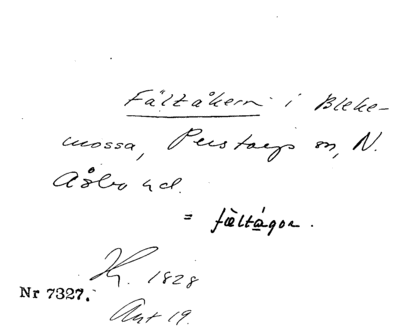 Fältåkern i Bleke-
mossa, Perstorps sn, N.
Åsbo hd.
= fältågor.
1828
Nr 7327.
Art 19.